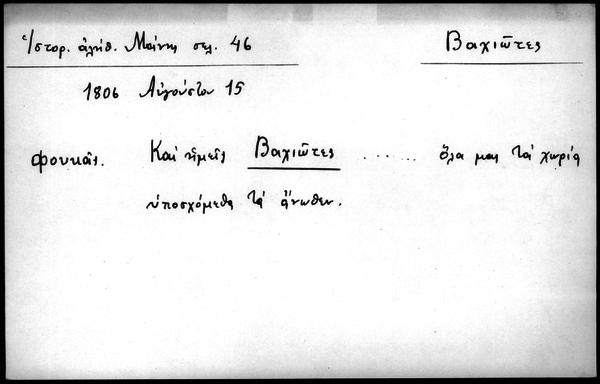 Ἱστορ. ἀλήθ. Μάνης σελ. 46
Βαχιῶτες
1806 Αὐγούστου 15
Φουκᾶς. Καὶ ἡμεῖς Βαχιῶτες ....... ὅλα μας τὰ χωρία
ὑποσχόμεθα τὰ ἄνωθεν.